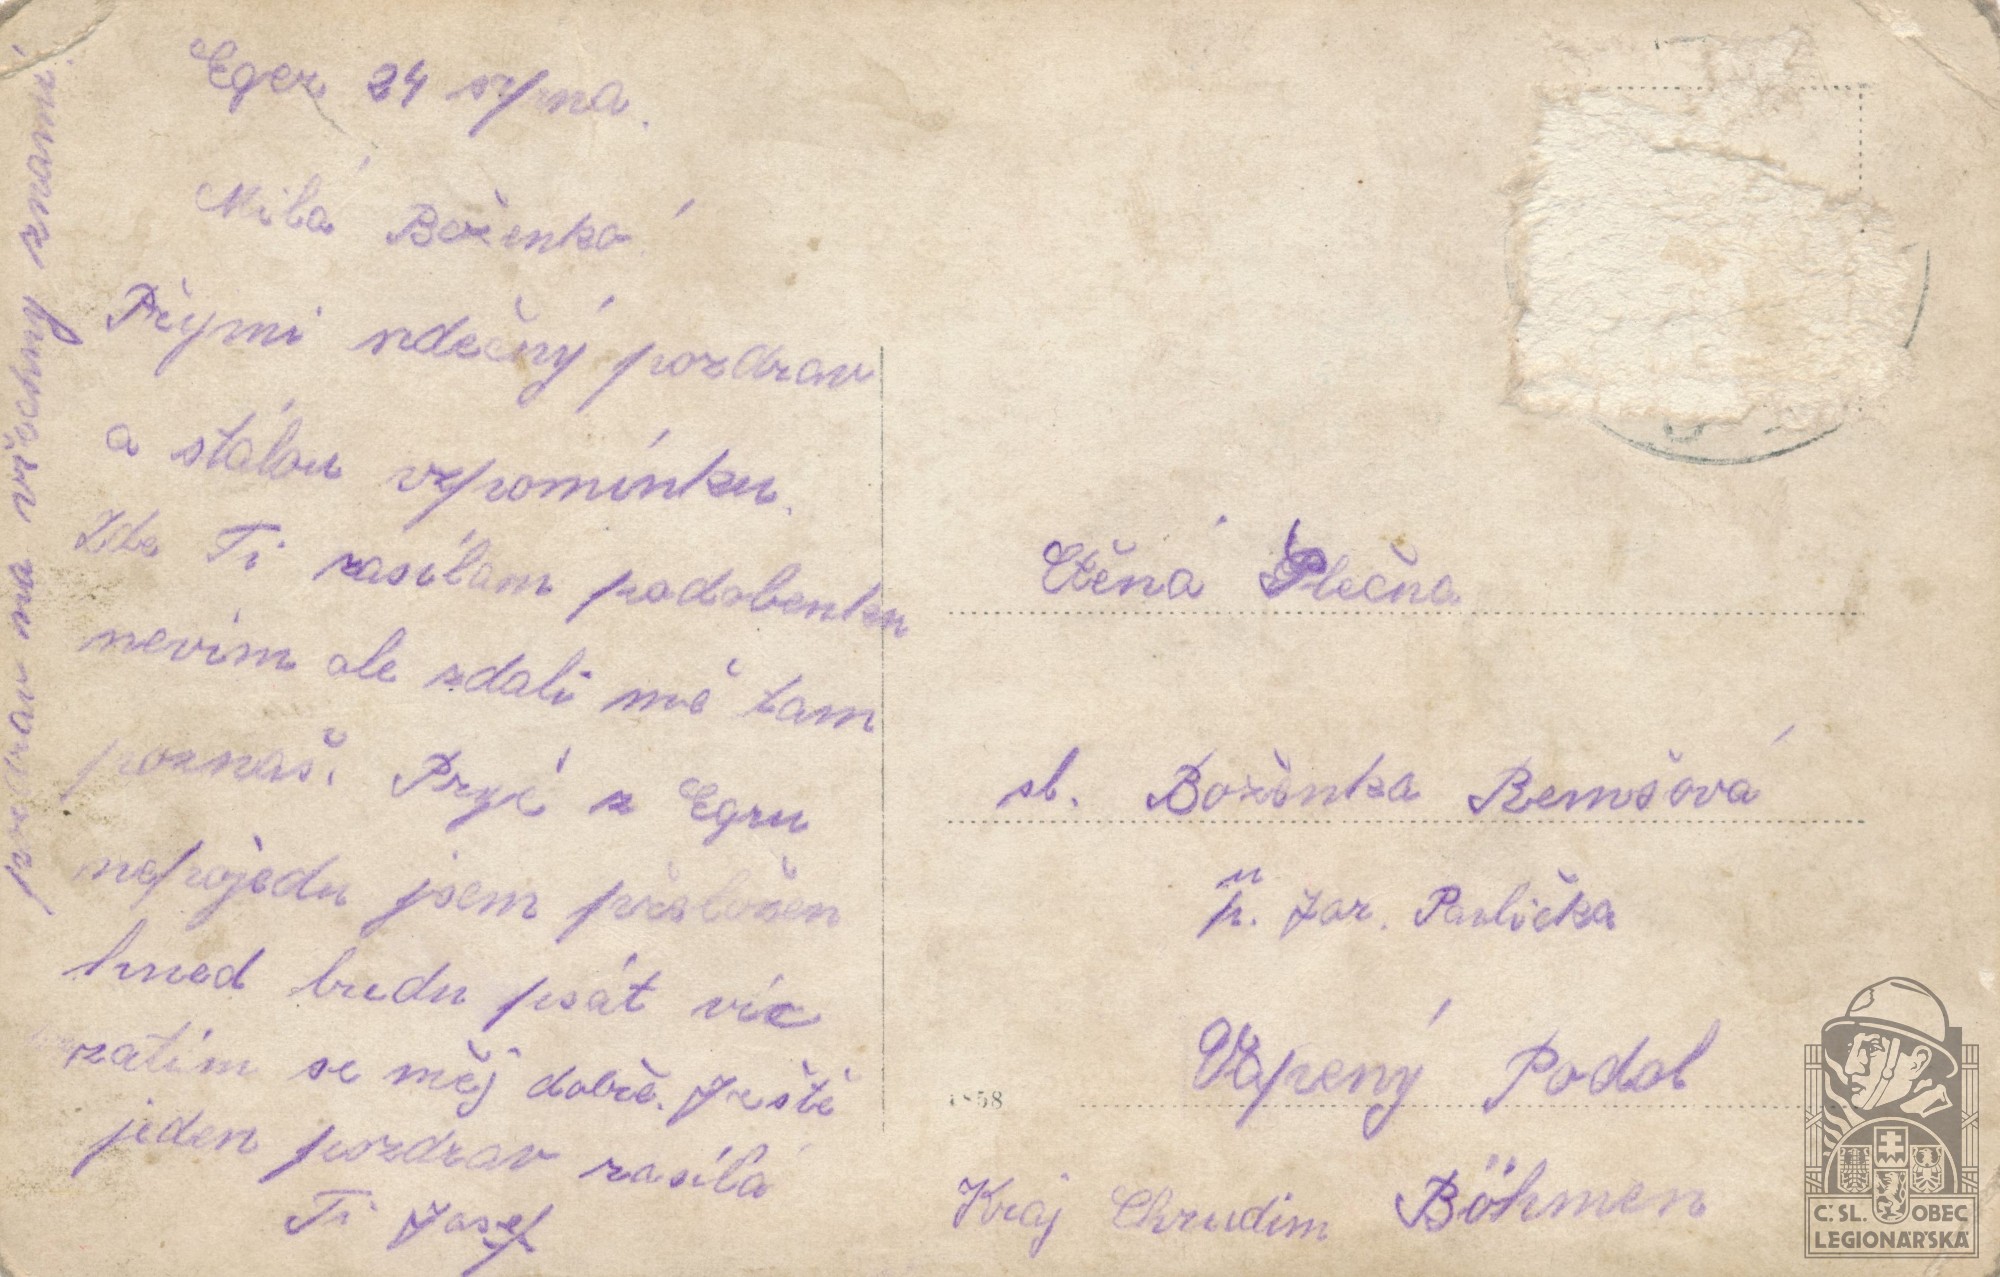 Eger 24 srpna.
Milá Boženko!
Přijmi srdečný pozdrav
a stálou vzpomínku.
Zde Ti zasílam podobenku
nevim ale zdali mě tam
poznaš. Pryč z Egru
nepojedu jsem přeložen
hned budu psát víc
zatím se měj dobře. Ještě
jeden pozdrav zasílá
Ti Josef
pozdrav na všechny známé!
Ctěná Slečna
sl. Boženka Remšová
u
p. Jar. Pavlička
Vápený Podol
Kraj Chrudim Böhmen
1858
Č. SL. OBEC
LEGIONÁŘSKÁ